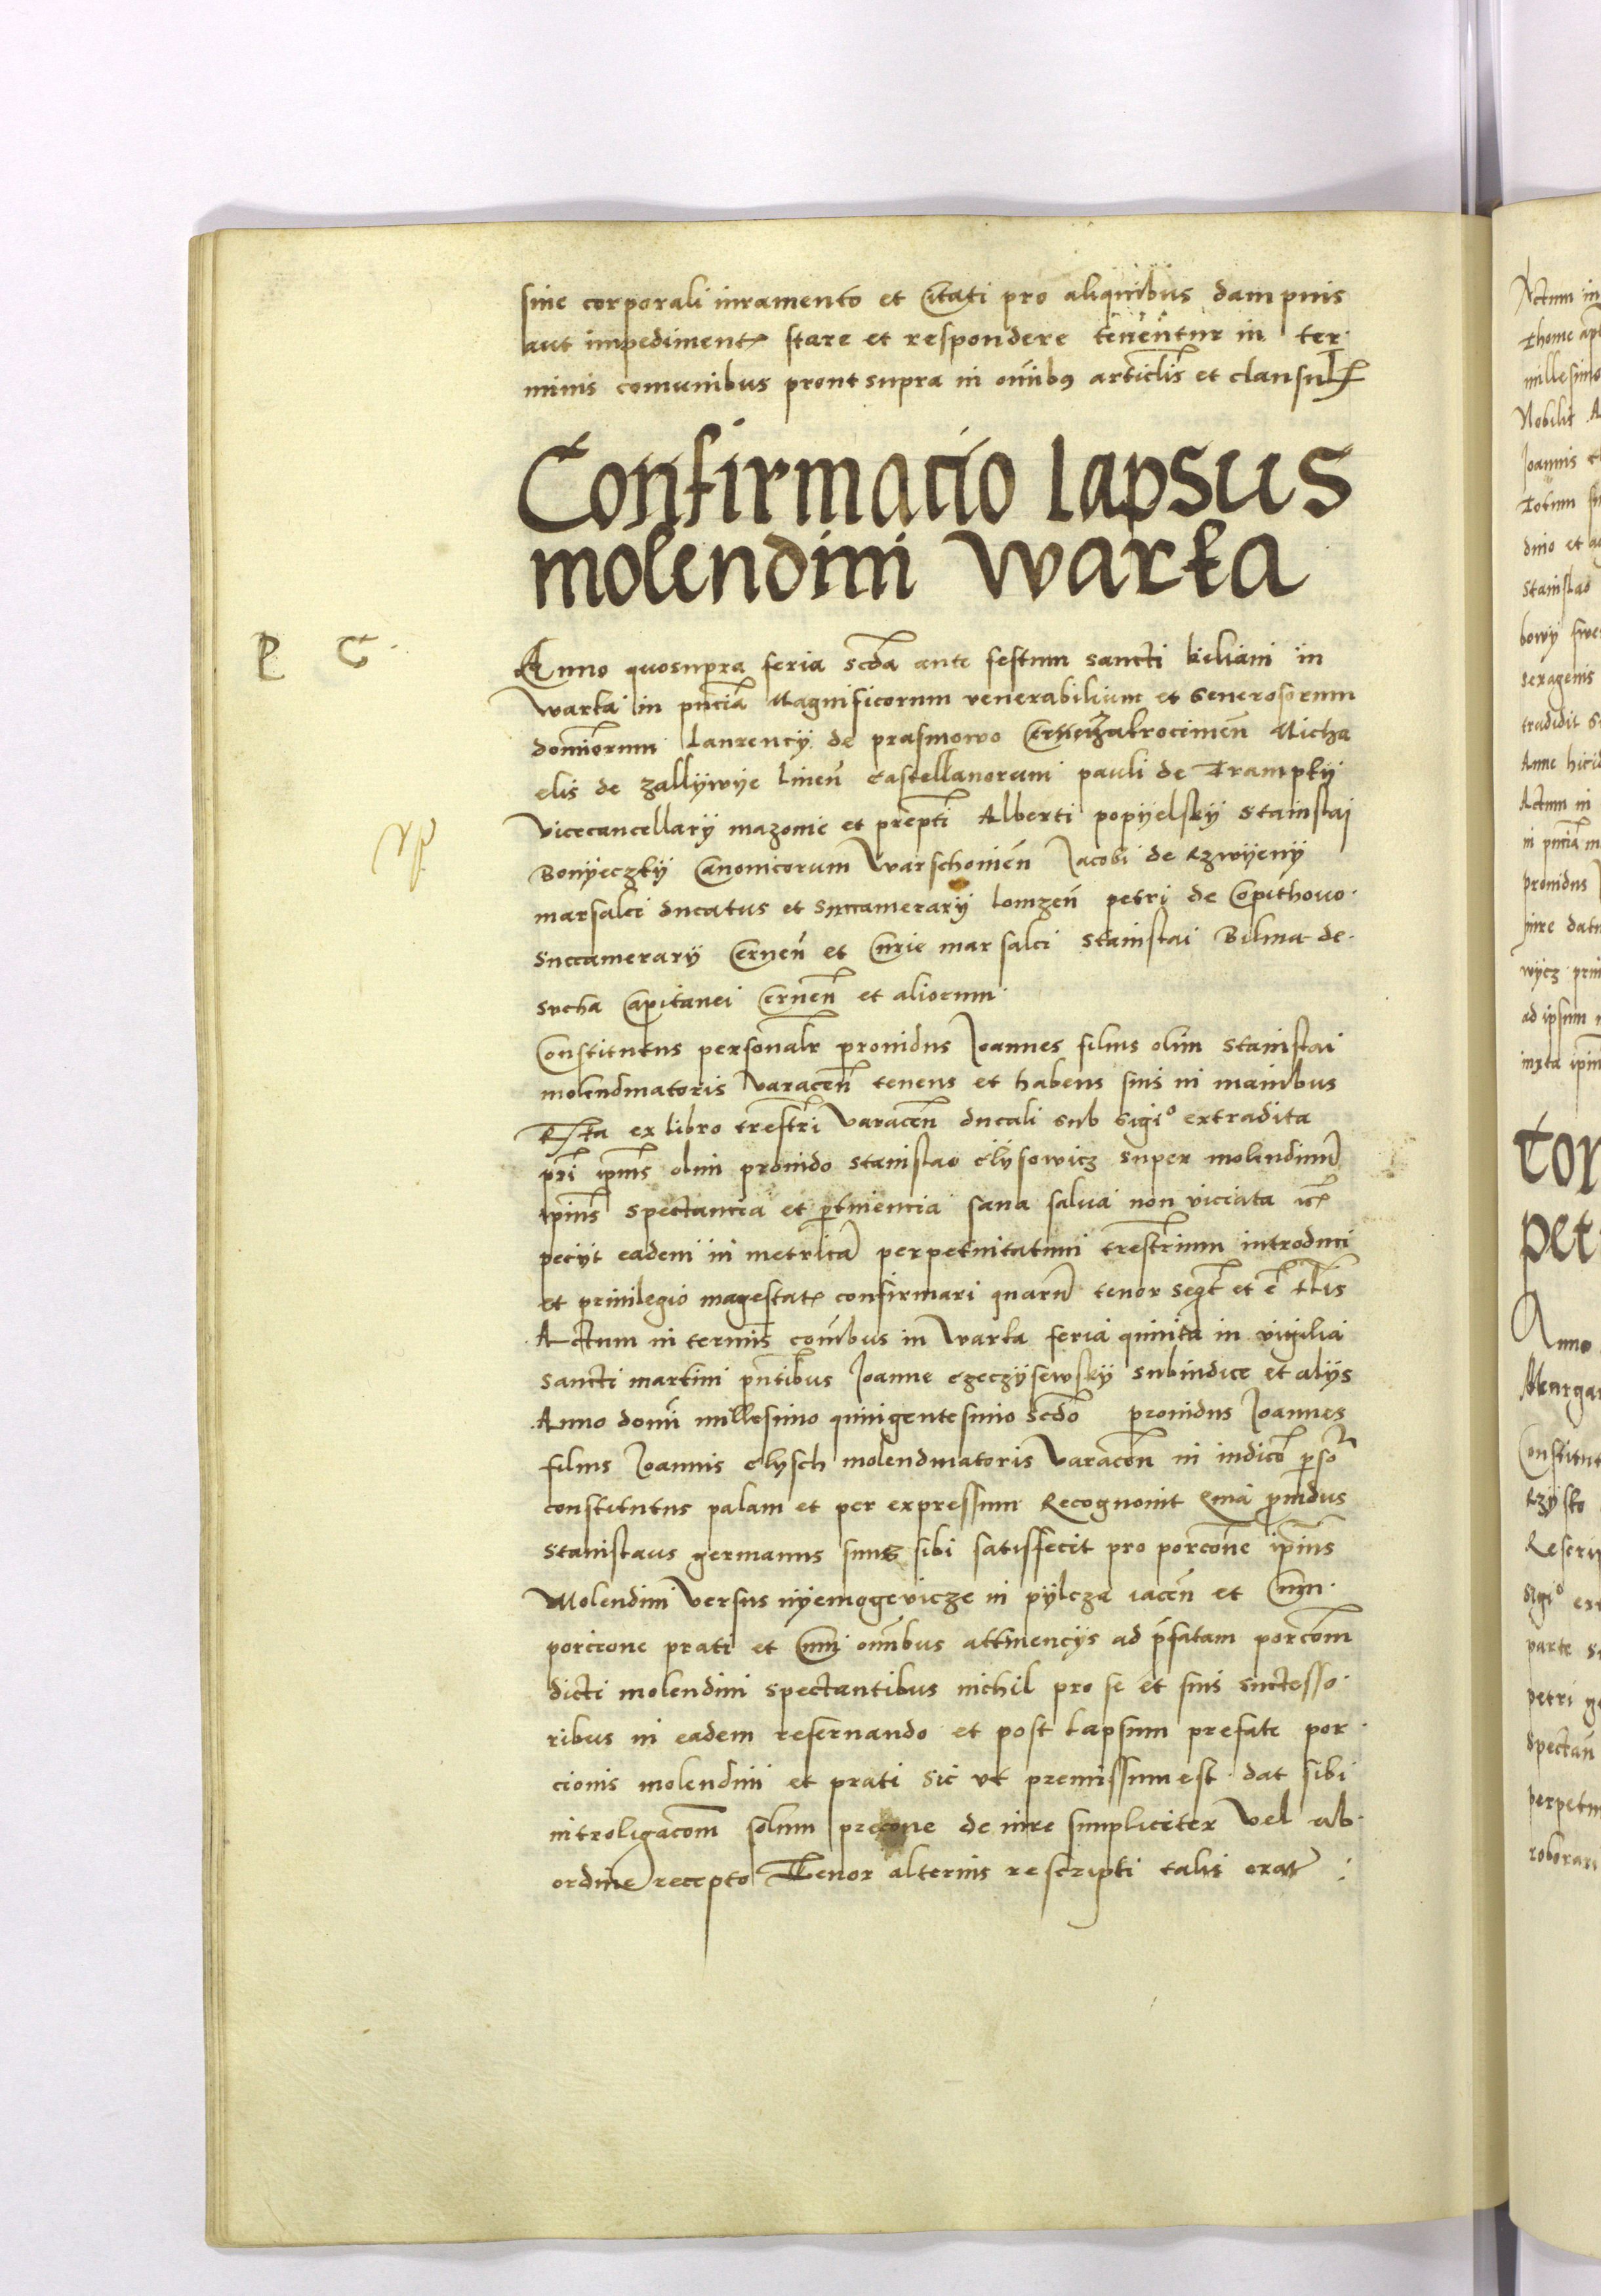 sine corporali iuramento et Citati pro aliquibus dampnis
aut impediment stare et respondere tenentur in ter
minis comunibus prout supra in omibus articlis et clausul
Confirmacio lapsus
molendini warka
P C
Anno quosupra feria scda ante festum sancti kiliani in
warka in pnciam Magnificorum venerabilium et Generosorum
dominorum laurencij de prasmowo Zakrocimen Micha
elis de zallijwije linen castellanorum pauli de Trampkij
vicecancellarij mazouie et prepti Alberti popijelskij Stanislai
Bonijeczkij Canonicorum Warschouien Jacobi de Rzwijenij
marsalci ducatus et Succamerarij lomzen petri de Copithouo
Succamerarij Cernen et Curie marsalci Stanislai Bilina de
Sucha Capitanei Cernen et aliorum
Constitutus personalr prouidus Joannes filius olim Stanislai
molendinatoris Varacen tenens et habens suis in manibus
Rpta ex libro trestri Varacen ducali sub Sigio extradita
pri ipius olim prouido Stanislao elysowicz super molendinu
ipius spectancia et ptinencia sana salua non viciata
pecijt eadem in metrica perpetuitatum trestrium introduci
et priuilegio magestat confirmari quaru tenor seqt et e tlis
Actum in termis comibus in warka feria quinta in vigilia
Sancti martini pntibus Joanne czeczijsewskij Subiudice et alijs
Anno domi millesimo quingentesimo scdo prouidus Joannes
filius Joannis elysch molendinatoris Varacen in iudico pso
constitutus palam et per expressum Recognouit Qma prouidus
Stanislaus germanus suus sibi satisfecit pro porcone ipius
Molendini Versus nijemogevicze in pijlcza iacen et Cum
porcione prati et Cum omibus attinencijs ad pfatam porcom
dicti molendini spectantibus nichil pro se et suis successo
ribus in eadem reseruando et post lapsum prefate por
cionis molendini et prati Sic vt premissum est dat sibi
introligacom solum precone de iure simpliciter vel ab
ordine recepto Tenor alterius rescripti talis erat